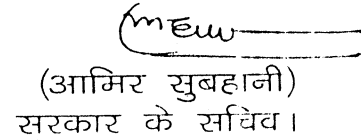 (आमिर सुबहानी)
सरकार के सचिव।